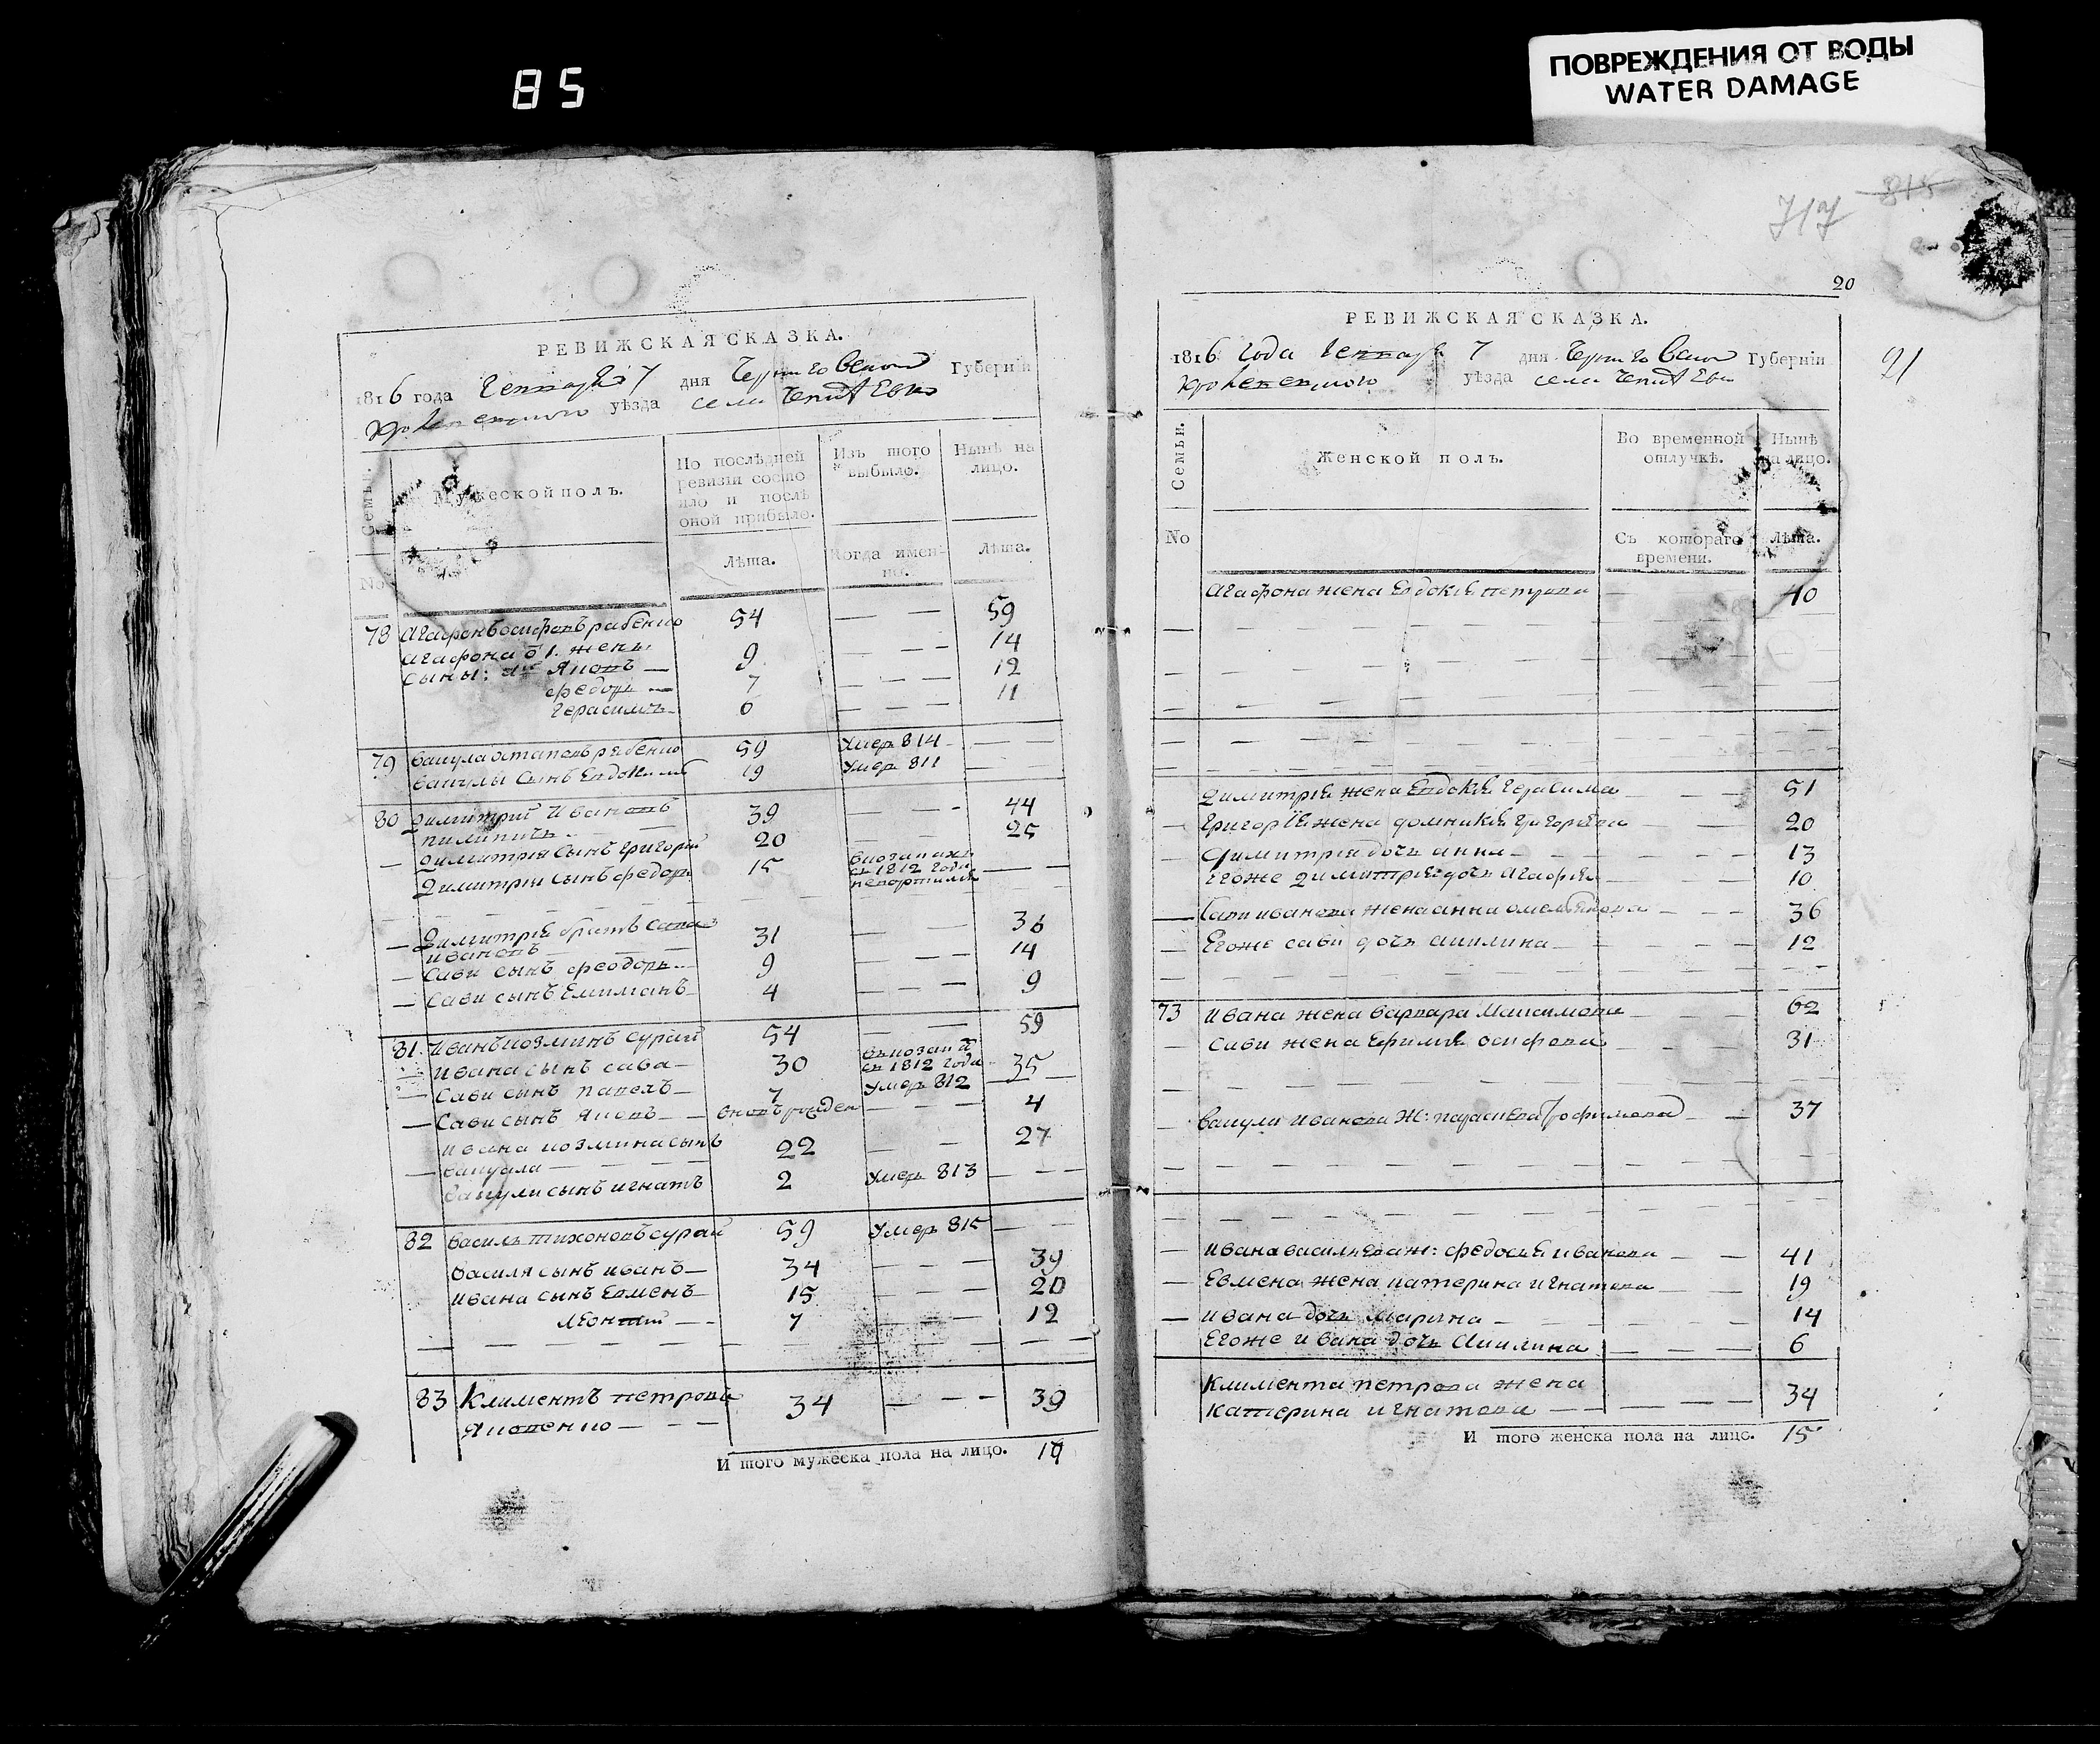 85
ПОВРЕЖДЕНИЯ ОТ ВОДЫ
WATER DAMAGE
РЕВИЖСКАЯ СКАЗКА.
1816 года Генваря 7 дня Черниговской Губерніи
уѣзда села
Семьи.
Мужеской полъ.
По послѣдней ревизіи состояло и послѣ оной прибыло.
Изъ того выбыло.
Нынѣ на лицо.
No
Лѣта.
Когда именно.
Лѣта.
78 Агафонъ Осифовъ рабенко 54 — 59
Агафона от 1. жены
сыны: Яковъ — 9 — — 14
Федоръ — 7 — — — 12
Герасимъ — 6 — — — 11
79 Вакула Остаповъ рабенко 59 Умеръ 814 — —
Вакулы сынъ Евдокимъ 19 Умеръ 811 — —
80 Димитрий Ивановъ 39 — — 44
— Димитрия сынъ Григорий 20 — — 25
Димитрия сынъ Федоръ 15 въ козакахъ съ 1812 года —
— Димитрія братъ Сава
Ивановъ — 31 — — 36
— Сави сынъ Феодоръ — 9 — — — 14
— Сави сынъ Емилианъ — 4 — — — 9
81. Иванъ Козминъ Сурай 54 — — 59
— Ивана сынъ Сава — 30 въ козакахъ съ 1812 года 35
— Сави сынъ Павелъ — 7 Умеръ 812 — —
— Сави сынъ Яковъ — вновь рожден — — — 4
Ивана Козмина сынъ
— Вакула — — — 22 — — 27
Вакули сынъ Игнатъ 2 Умеръ 813 — — —
82 Василь Тихоновъ Сурай 59 Умеръ 815 — —
Василя сынъ Иванъ — 34 — — — 39
Ивана сынъ Евменъ — 15 — — — 20
Леонтий — — 7 — — — 12
83 Климентъ Петровъ
Яковенко — — — 34 — — — 39
И того мужеска пола на лицо. 14
717
818
20
21
РЕВИЖСКАЯ СКАЗКА.
1816 года Генваря 7 дня Черниговской Губерніи
уѣзда села
Семьи.
Женской полъ.
Во временной отлучкѣ.
Нынѣ на лицо.
No
Съ котораго времени.
Лѣта.
Агафона жена Евдокія Петрова — — 40
Димитрія жена Евдокія Герасимова — — 51
— Григорія жена Домникія Григорієва — — 20
— Димитрія дочь Анна — — — — 13
Егоже Димитрія дочь Агафія — — — 10
— Сави Иванова жена Анна Омельянова — — — 36
— Егоже Сави дочь Акилина — — — — 12
73 Ивана жена Варвара Максимова — — — 62
— Сави жена Ефимія Осифова — — — 31
— Вакули Иванова ж: Параскева Трофимова — — 37
— Ивана Василієва ж: Федосія Иванова — — 41
— Евмена жена Катерина Игнатова — — 19
— Ивана дочь Марина — — — — 14
Егоже Ивана дочь Акилина — — — 6
Климента Петрова жена
Катерина Игнатова — — — — — 34
И того женска пола на лицо. 15